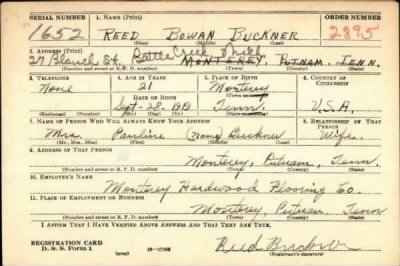 SERIAL NUMBER 1. NAME (Print) ORDER NUMBER
1652 REED BOWAN BUCKNER 2895
(First) (Middle) (Last)
2. ADDRESS (Print)
27 Blanch St. Battle Creek Mich
MONTEREY, PUTNAM, TENN.
(Number and street or R. F. D. number) (Town) (County) (State)
3. TELEPHONE 4. AGE IN YEARS 5. PLACE OF BIRTH 6. COUNTRY OF CITIZENSHIP
None 21 Monterey
DATE OF BIRTH (Town or county)
Sept-28-1919 Tenn. U.S.A.
(Exchange) (Number) (Mo.) (Day) (Yr.) (State or country)
7. NAME OF PERSON WHO WILL ALWAYS KNOW YOUR ADDRESS 8. RELATIONSHIP OF THAT PERSON
Mrs. Pauline Buckner Wife
(Mr., Mrs., Miss) (First) (Middle) (Last)
9. ADDRESS OF THAT PERSON
Monterey, Putnam, Tenn
(Number and street or R. F. D. number) (Town) (County) (State)
10. EMPLOYER'S NAME
Monterey Hardwood Flooring Co.
11. PLACE OF EMPLOYMENT OR BUSINESS
Monterey, Putnam, Tenn
(Number and street or R. F. D. number) (Town) (County) (State)
I AFFIRM THAT I HAVE VERIFIED ABOVE ANSWERS AND THAT THEY ARE TRUE.
REGISTRATION CARD
D. S. S. Form 1 (over) Reed Buckner
(Registrant's signature)